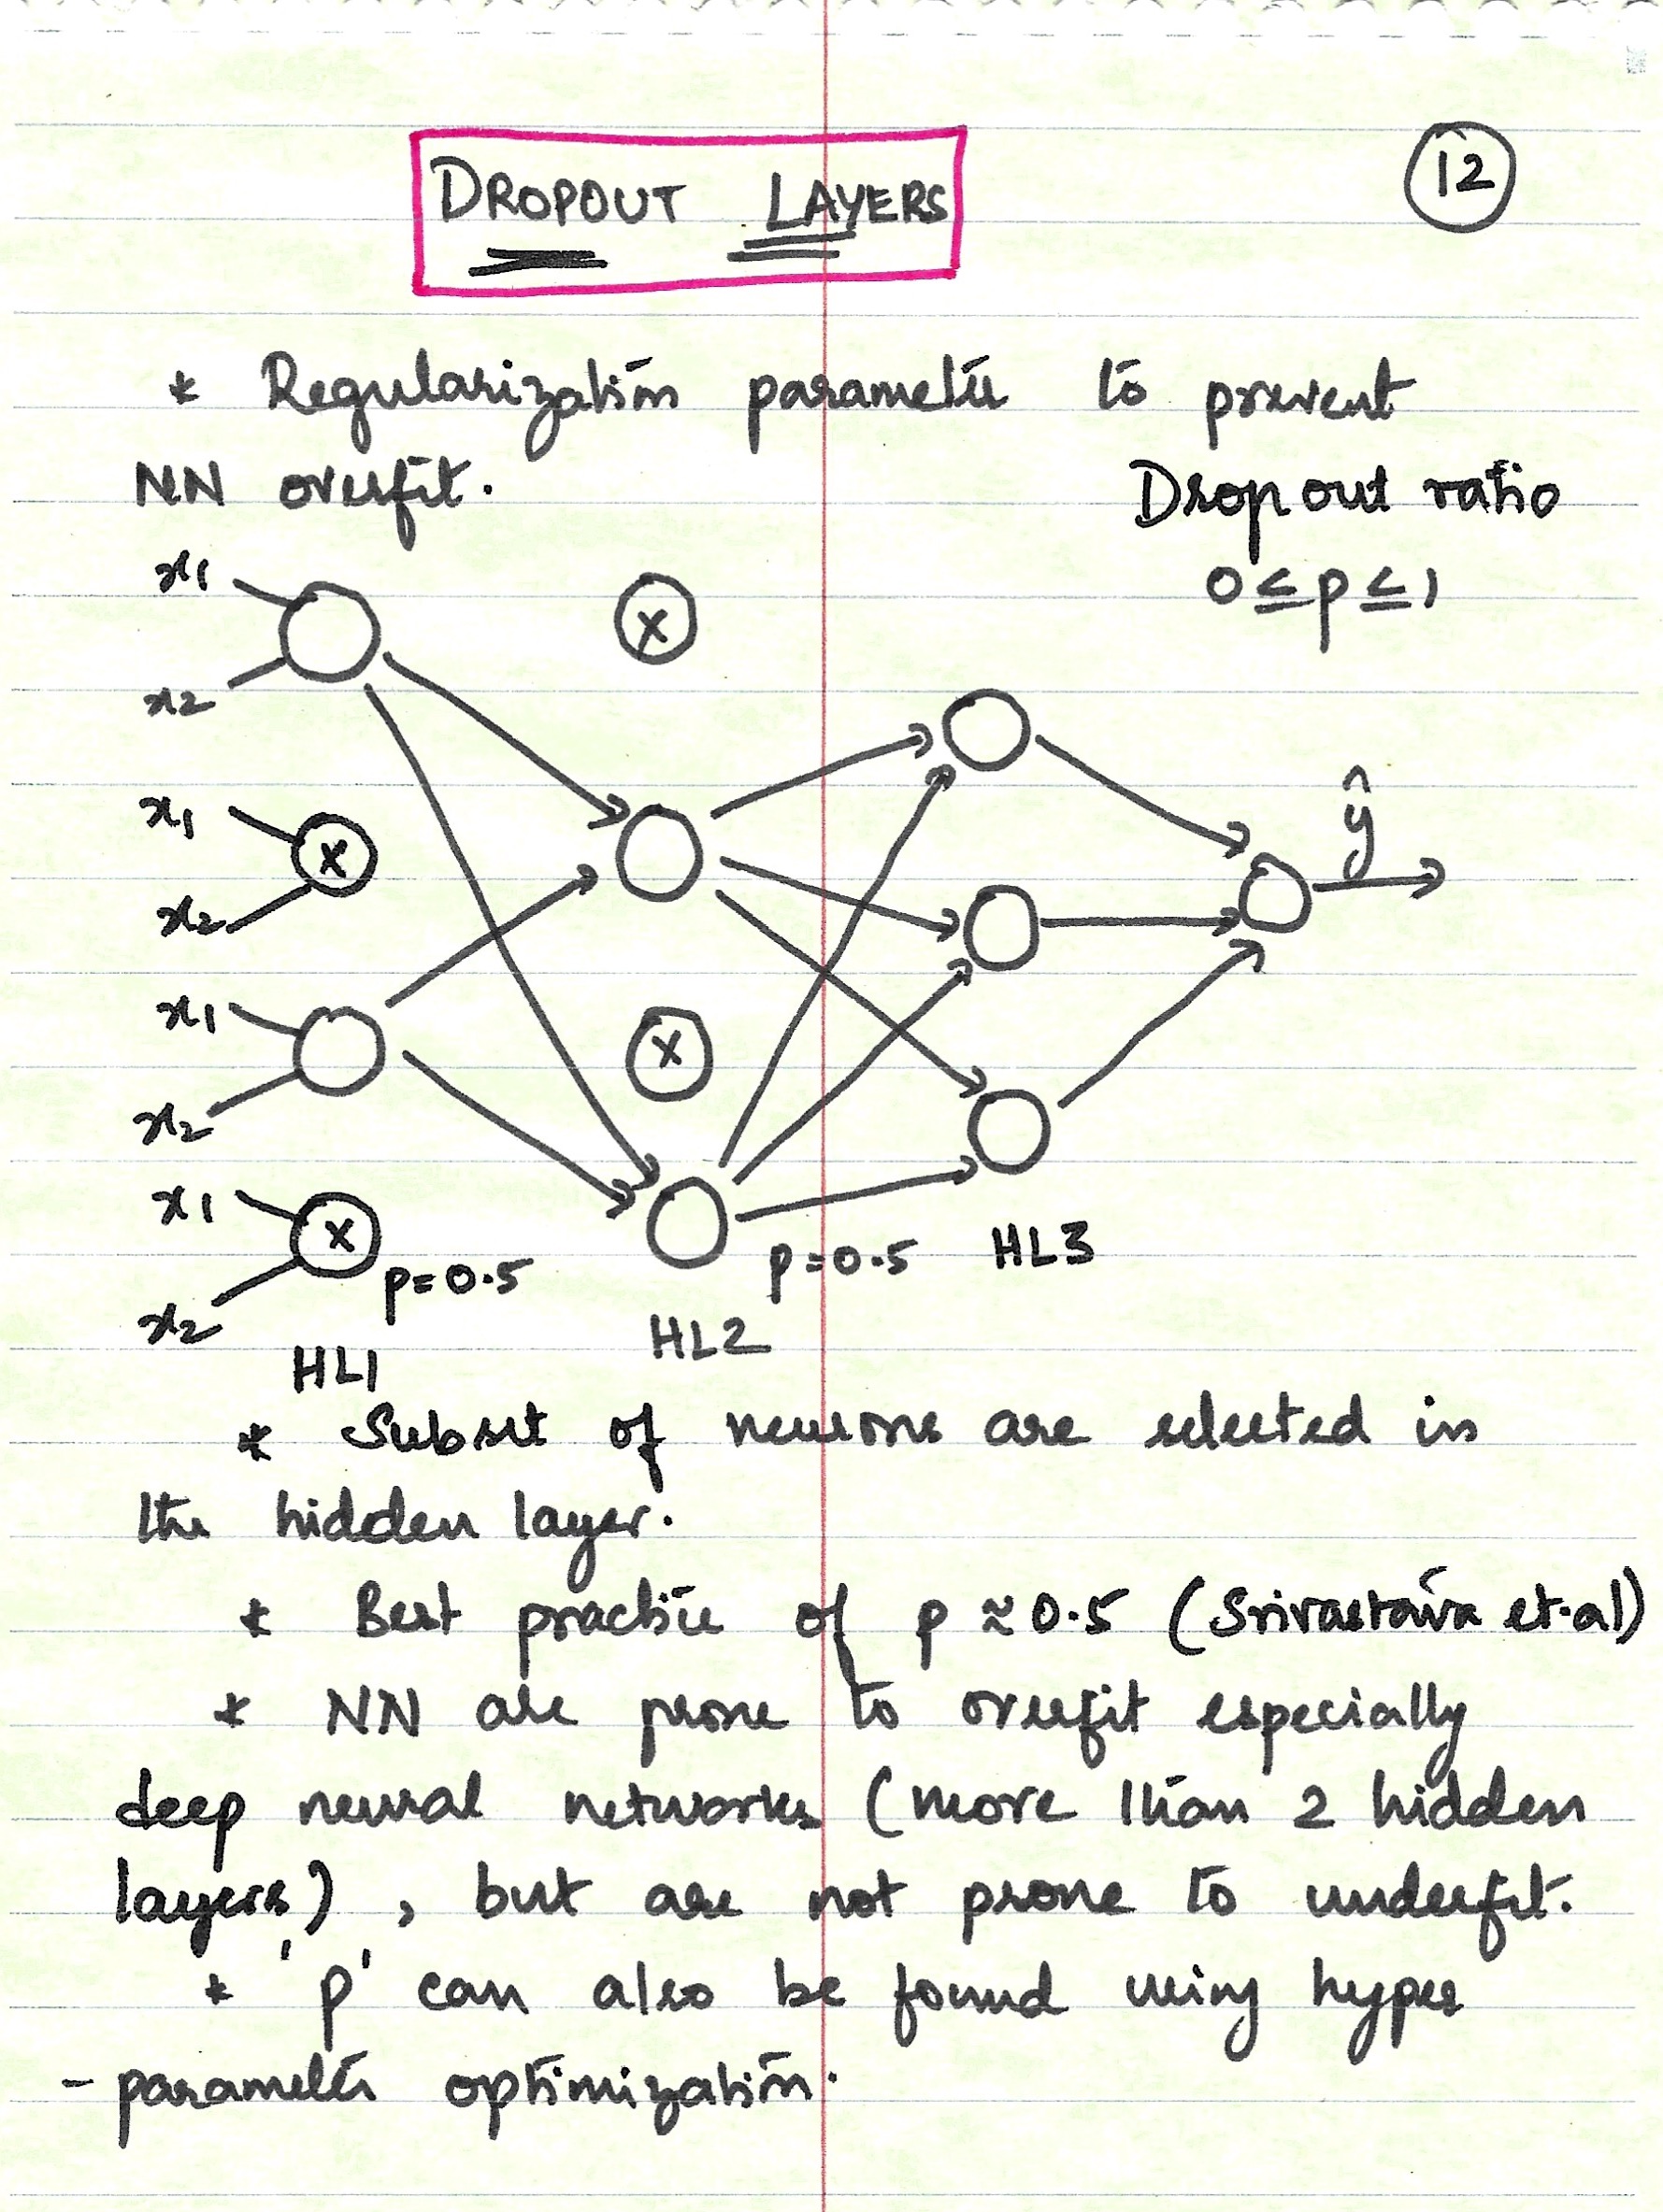 DROPOUT LAYERS
12
* Regularization parameter to prevent
NN overfit.
Dropout ratio
0 ≤ p ≤ 1
x1
x
x2
x1
x
x2
ŷ
x1
x
x2
x1
x
x2
p=0.5
p=0.5
HL3
HL2
HL1
* Subset of neurons are selected in
the hidden layer.
* Best practice of p ≈ 0.5 (Srivastava et.al)
* NN are prone to overfit especially
deep neural networks (more than 2 hidden
layers), but are not prone to underfit.
* 'p' can also be found using hyper
- parameter optimization.